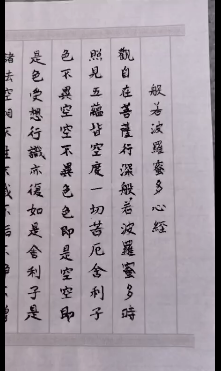 般若波羅蜜多心經
觀自在菩薩行深般若波羅蜜多時
照見五蘊皆空度一切苦厄舍利子
色不異空空不異色色即是空空即
是色受想行識亦復如是舍利子是
諸法空相不生不滅不垢不淨不增